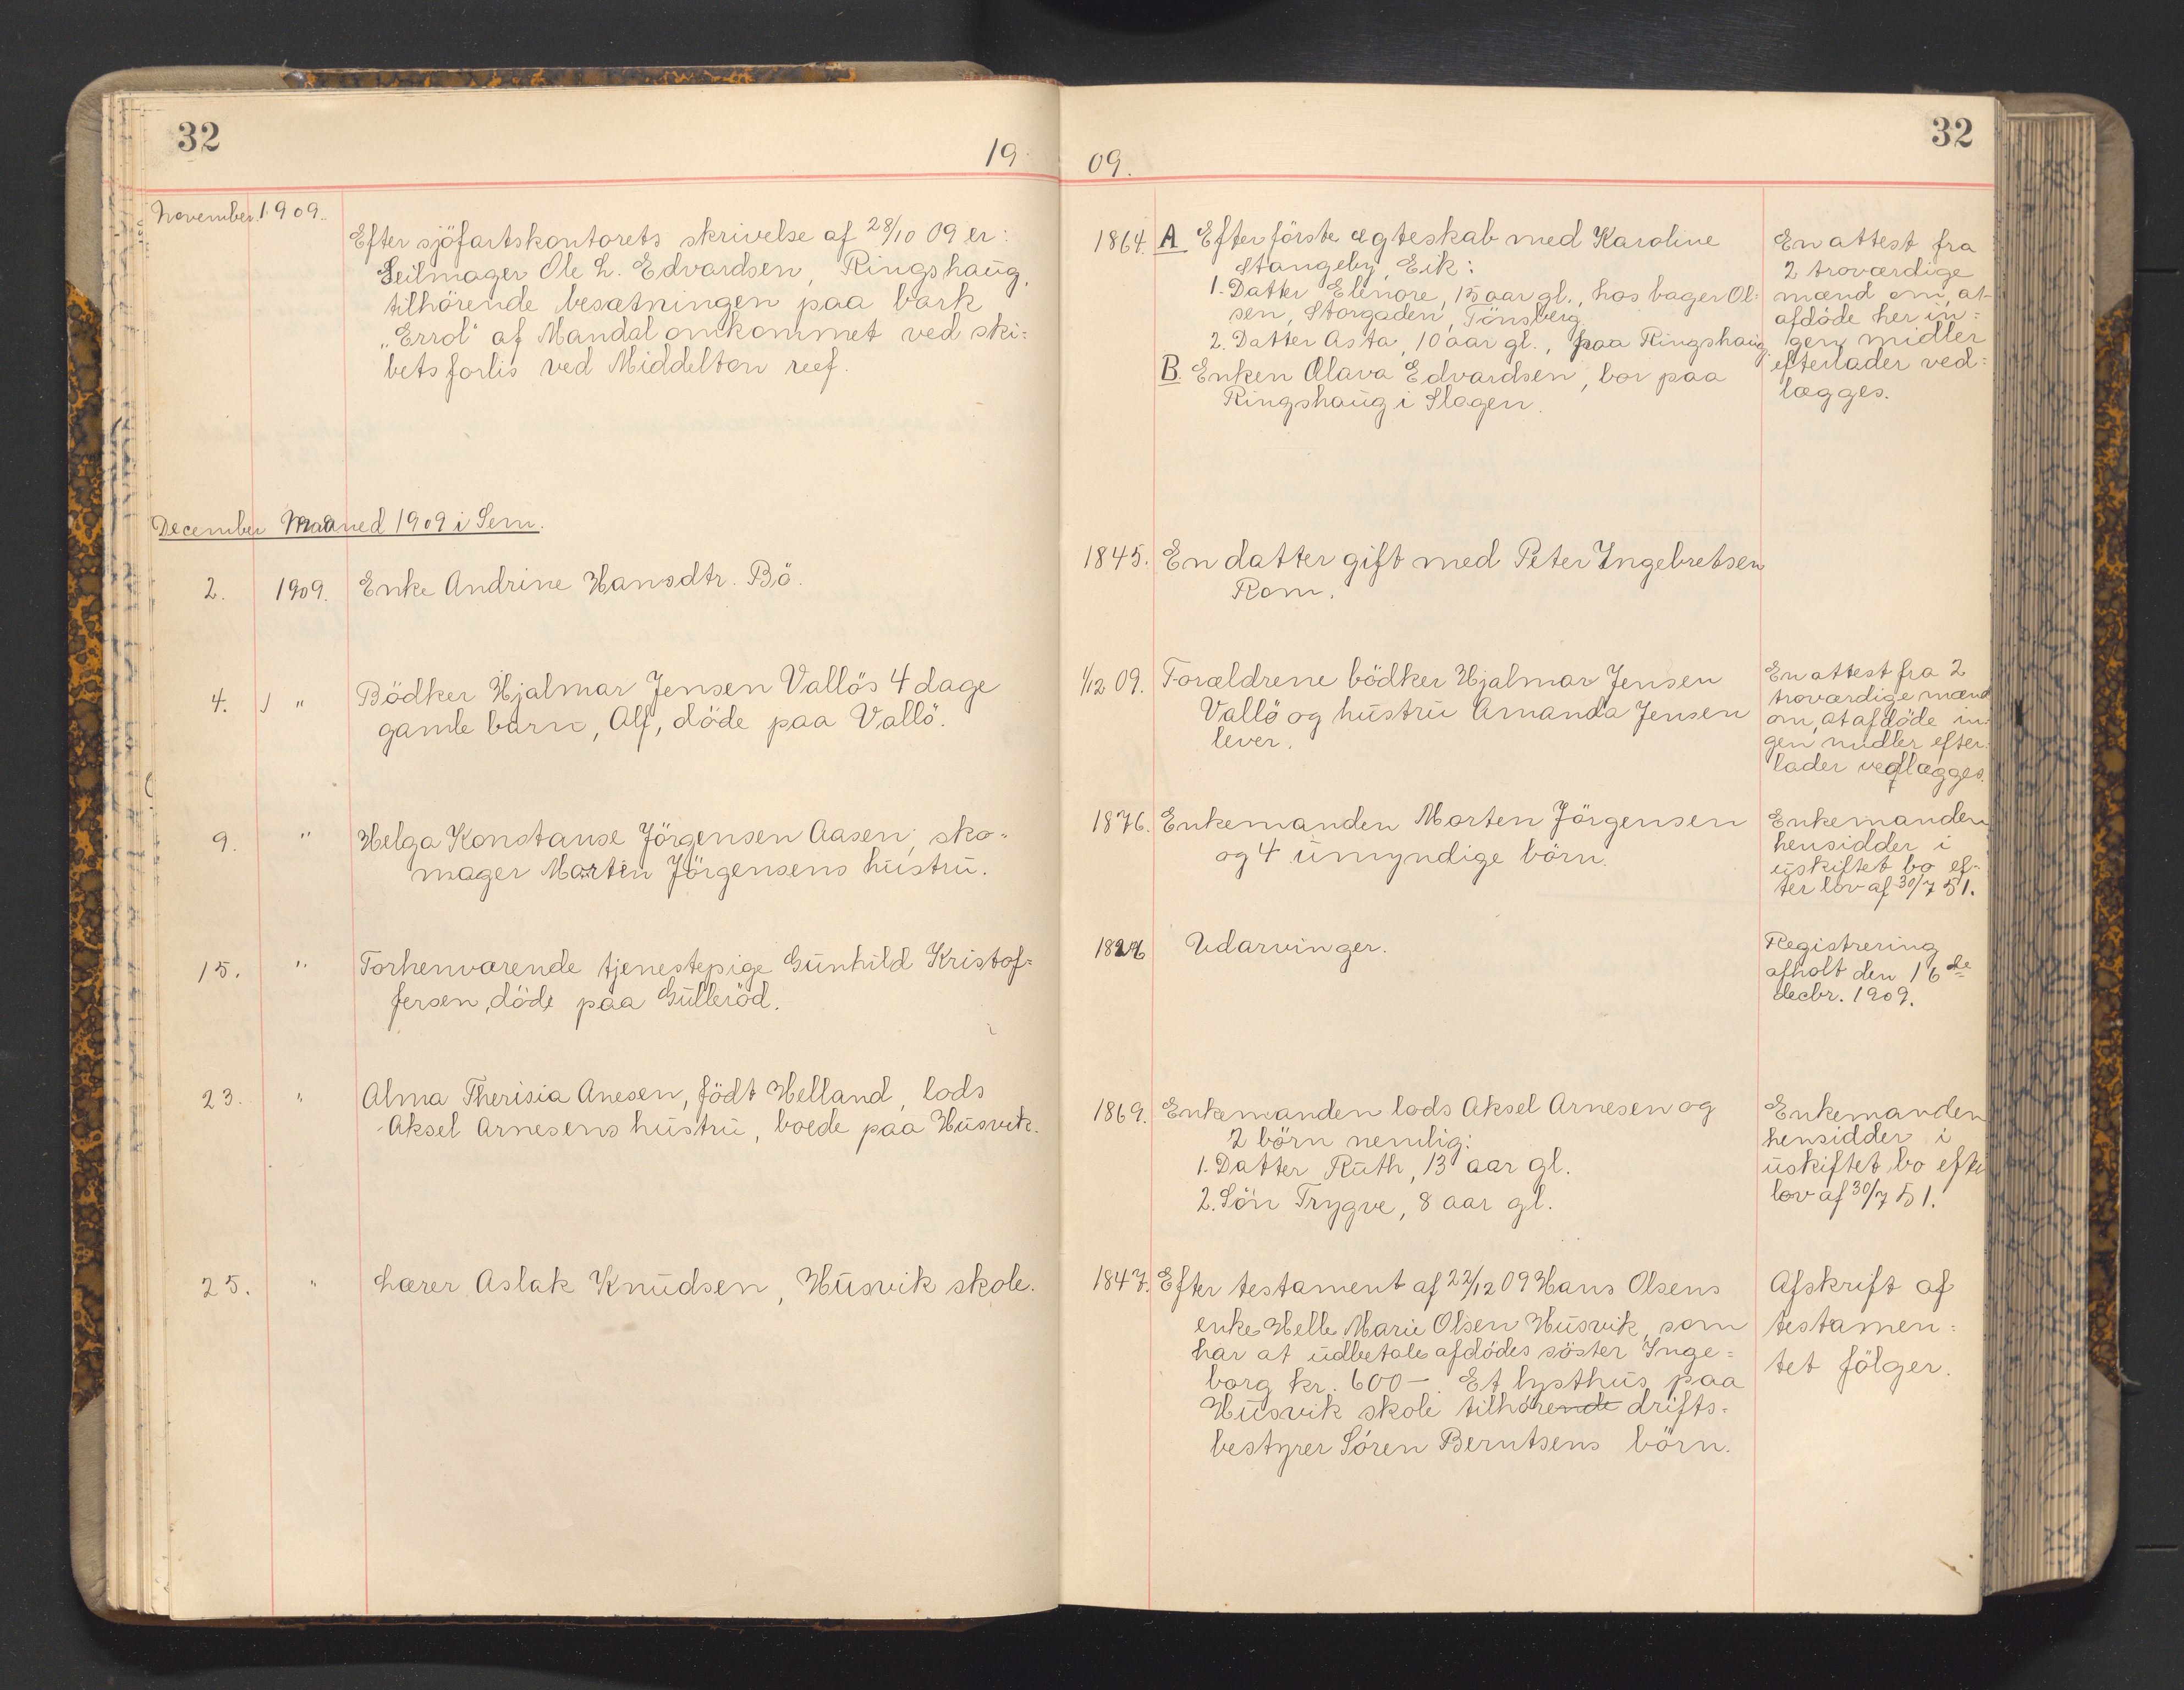 32
19
November 1909.
Efter sjöfartskontorets skrivelse af 28/10 09 er:
Seilmager Ole L. Edvardsen, Ringshaug,
tilhörende besætningen paa bark
„Errol" af Mandal omkommet ved ski-
bets forlis ved Middelton reef.
December Maaned 1909 i Sem.
2. 1909. Enke Andrine Hansdtr. Bö.
4. " Bödker Hjalmar Jensen Vallös 4 dage
gamle barn, Alf, döde paa Vallö.
9. " Helga Konstanse Jörgensen Aasen, sko-
mager Martin Jörgensens hustru.
15. " Forhenværende tjenestepige Gunhild Kristof-
fersen, döde paa Gulleröd.
23. " Alma Therisia Anesen, födt Helland, lods
Aksel Arnesens hustru, boede paa Husvik.
25. " Lærer Aslak Knudsen, Husvik skole.
32
09.
1864. A Efter förste ægteskab med Karoline
Stangeby, Eik:
1. Datter Elenore, 15 aar gl., hos bager Ol-
sen, Storgaden, Tönsberg
2. Datter Asta, 10 aar gl., paa Ringshaug.
B. Enken Olava Edvardsen, bor paa
Ringshaug i Slagen.
En attest fra
2 troværdige
mænd om, at
afdöde her in-
gen midler
efterlader ved-
lægges.
1845. En datter gift med Peter Ingebretsen
Rom.
1/12 09. Forældrene bödker Hjalmar Jensen
Vallö og hustru Amanda Jensen
lever.
En attest fra 2
troværdige mænd
om, at afdöde in-
gen midler efter-
lader vedlægges.
1876. Enkemanden Morten Jörgensen
og 4 umyndige börn.
Enkemanden
hensidder i
uskiftet bo ef-
ter lov af 30/7 51.
Udarvinger.
Registrering
afholt den 16de
decbr. 1909.
1869. Enkemanden lods Aksel Arnesen og
2 börn nemlig:
1. Datter Ruth, 13 aar gl.
2. Sön Trygve, 8 aar gl.
Enkemanden
hensidder i
uskiftet bo efte
lov af 30/7 51.
1847. Efter testament af 22/12 09 Hans Olsens
enke Helle Marie Olsen Husvik, som
har at udbetale afdödes söster Inge-
borg kr. 600 –. Et lysthus paa
Husvik skole tilhörende drifts-
bestyrer Sören Berntsens börn.
Afskrift af
testamen-
tet fölger.